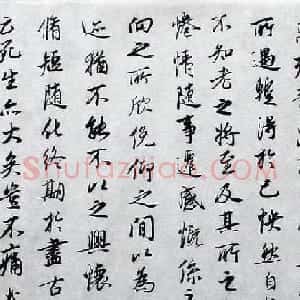 所遇蹔得於己怏然自
不知老之將至及其所之
惓情隨事遷感慨係之
向之所欣俛仰之間以為
迹猶不能不以之興懷
脩短隨化終期於盡古
云死生亦大矣豈不痛